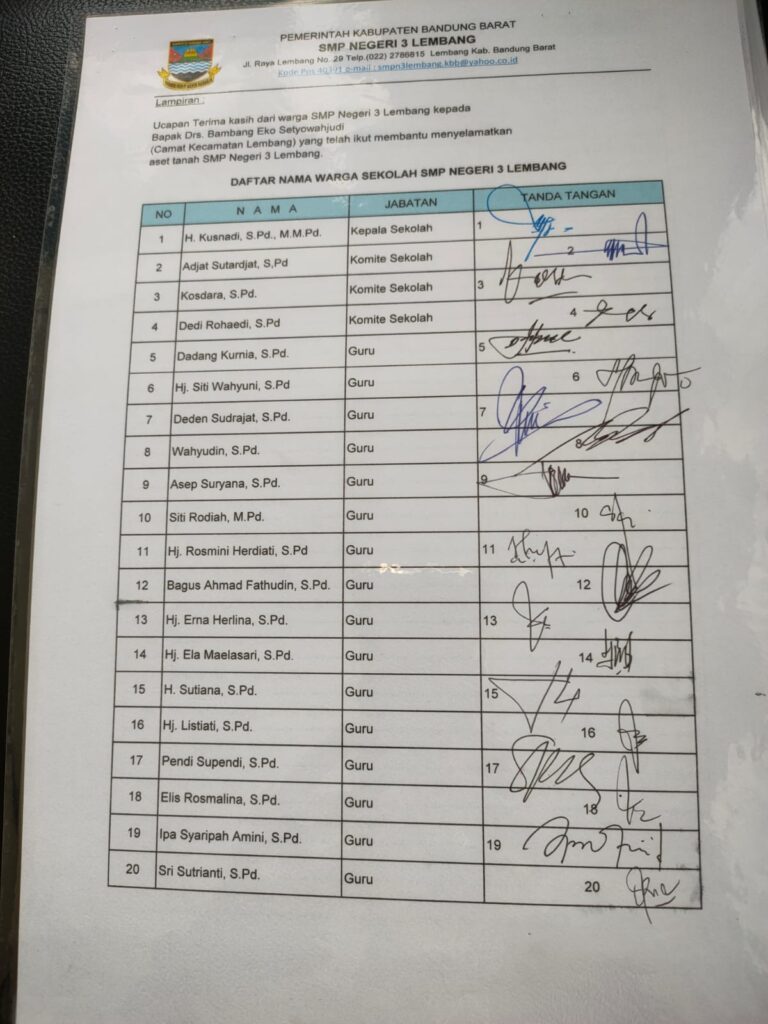 PEMERINTAH KABUPATEN BANDUNG BARAT
SMP NEGERI 3 LEMBANG
Jl. Raya Lembang No. 29 Telp.(022) 2786815 Lembang Kab. Bandung Barat
Kode Pos 40391 e-mail : smpn3lembang.kbb@yahoo.co.id
Lampiran :
Ucapan Terima kasih dari warga SMP Negeri 3 Lembang kepada
Bapak Drs. Bambang Eko Setyowahjudi
(Camat Kecamatan Lembang) yang telah ikut membantu menyelamatkan
aset tanah SMP Negeri 3 Lembang.
DAFTAR NAMA WARGA SEKOLAH SMP NEGERI 3 LEMBANG
NO N A M A JABATAN TANDA TANGAN
1 H. Kusnadi, S.Pd., M.M.Pd. Kepala Sekolah 1
2 Adjat Sutardjat, S,Pd Komite Sekolah 2
3 Kosdara, S.Pd. Komite Sekolah 3
4 Dedi Rohaedi, S.Pd Komite Sekolah 4
5 Dadang Kurnia, S.Pd. Guru 5
6 Hj. Siti Wahyuni, S.Pd Guru 6
7 Deden Sudrajat, S.Pd. Guru 7
8 Wahyudin, S.Pd. Guru 8
9 Asep Suryana, S.Pd. Guru 9
10 Siti Rodiah, M.Pd. Guru 10
11 Hj. Rosmini Herdiati, S.Pd Guru 11
12 Bagus Ahmad Fathudin, S.Pd. Guru 12
13 Hj. Erna Herlina, S.Pd. Guru 13
14 Hj. Ela Maelasari, S.Pd. Guru 14
15 H. Sutiana, S.Pd. Guru 15
16 Hj. Listiati, S.Pd. Guru 16
17 Pendi Supendi, S.Pd. Guru 17
18 Elis Rosmalina, S.Pd. Guru 18
19 Ipa Syaripah Amini, S.Pd. Guru 19
20 Sri Sutrianti, S.Pd. Guru 20